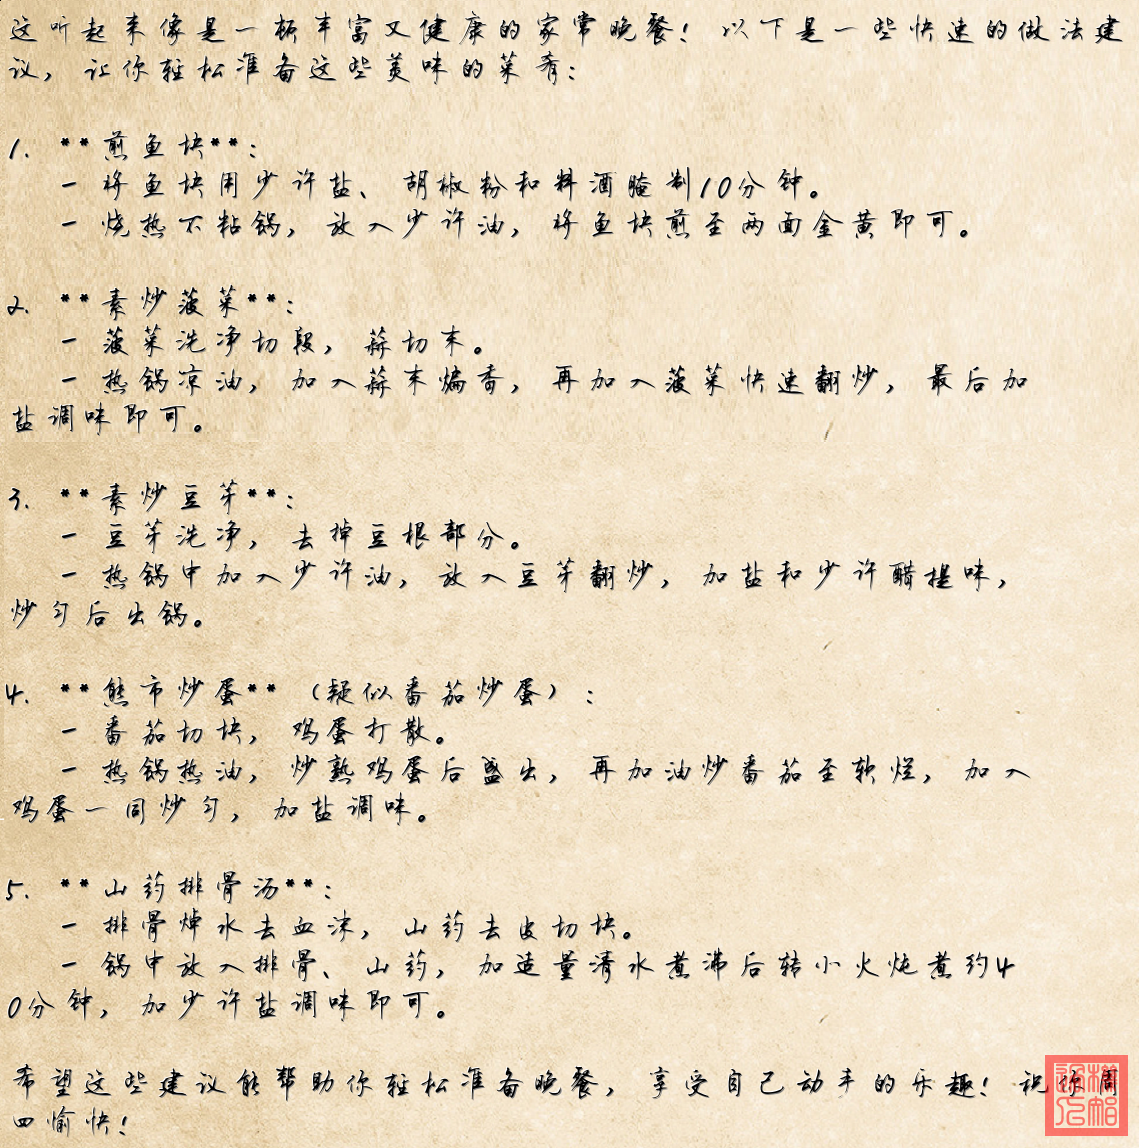 这听起来像是一顿丰富又健康的家常晚餐！以下是一些快速的做法建
议，让你轻松准备这些美味的菜肴：
1. **煎鱼块**：
- 将鱼块用少许盐、胡椒粉和料酒腌制10分钟。
- 烧热不粘锅，放入少许油，将鱼块煎至两面金黄即可。
2. **素炒菠菜**：
- 菠菜洗净切段，蒜切末。
- 热锅凉油，加入蒜末煸香，再加入菠菜快速翻炒，最后加
盐调味即可。
3. **素炒豆芽**：
- 豆芽洗净，去掉豆根部分。
- 热锅中加入少许油，放入豆芽翻炒，加盐和少许醋提味，
炒匀后出锅。
4. **熊市炒蛋**（疑似番茄炒蛋）：
- 番茄切块，鸡蛋打散。
- 热锅热油，炒熟鸡蛋后盛出，再加油炒番茄至软烂，加入
鸡蛋一同炒匀，加盐调味。
5. **山药排骨汤**：
- 排骨焯水去血沫，山药去皮切块。
- 锅中放入排骨、山药，加适量清水煮沸后转小火炖煮约4
0分钟，加少许盐调味即可。
希望这些建议能帮助你轻松准备晚餐，享受自己动手的乐趣！祝你周
四愉快！